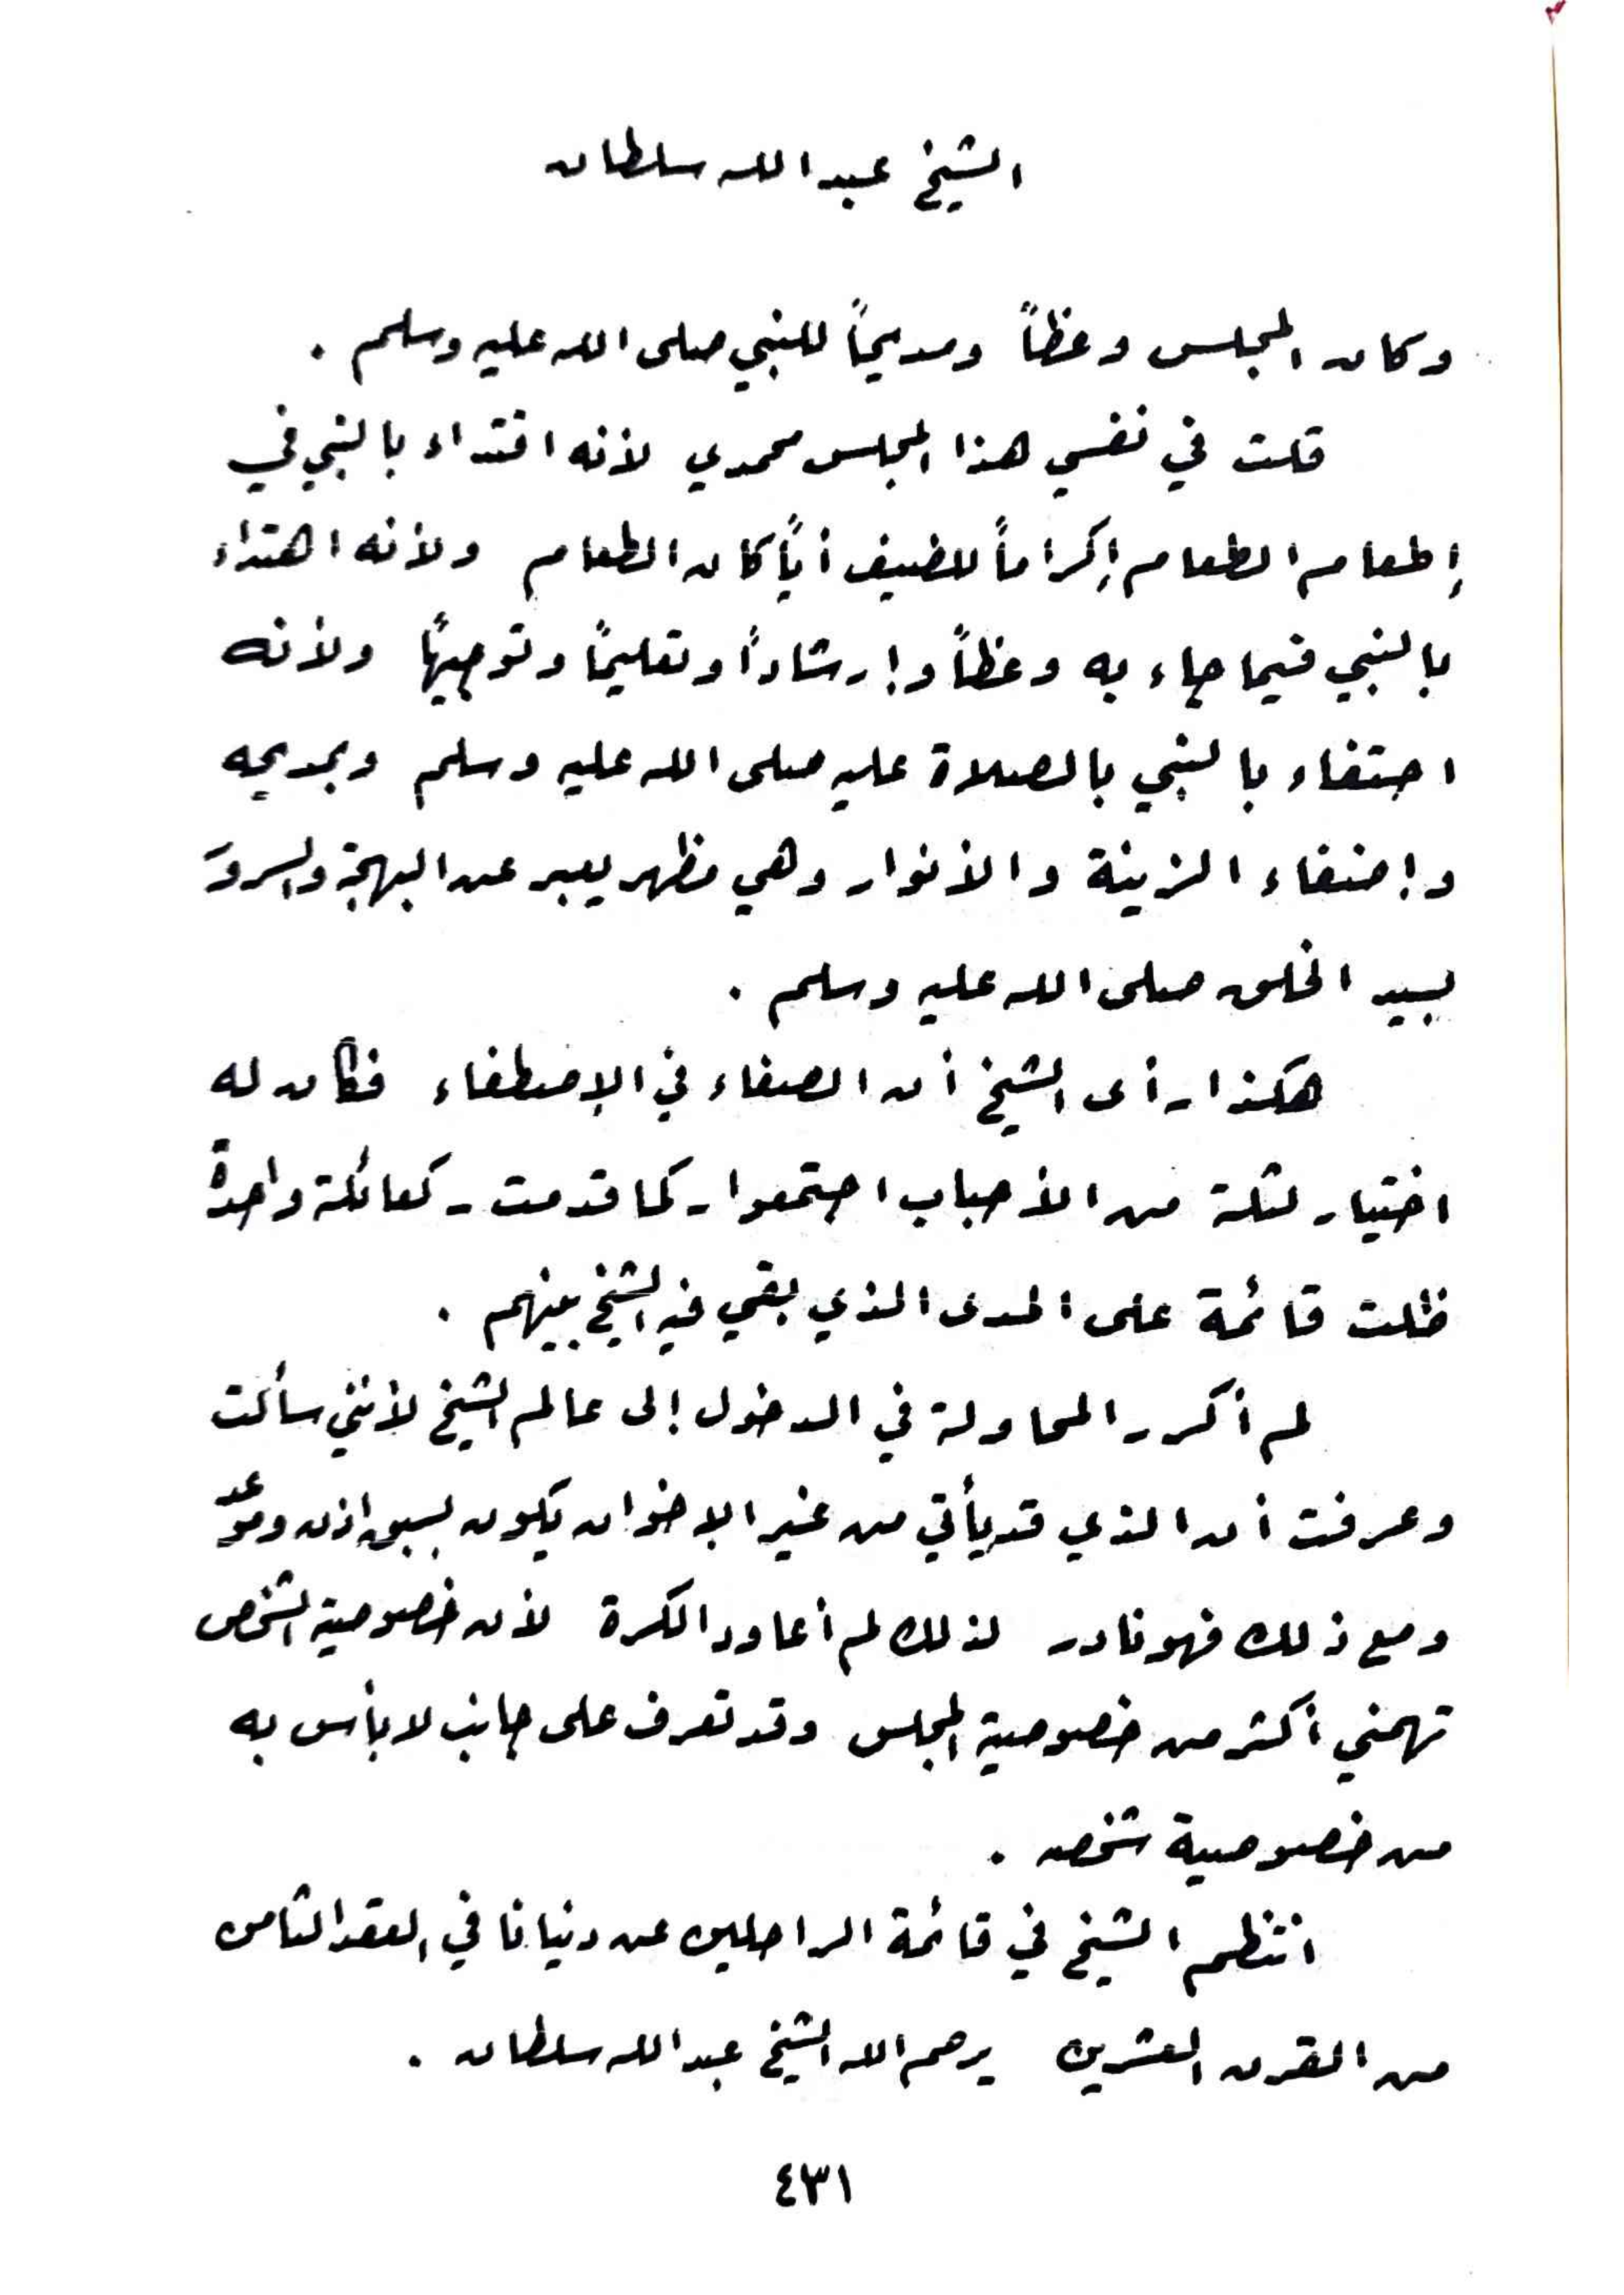 الشيخ عبد الله سلطان
وكان المجلس وعظاً ومديحاً للنبي صلى الله عليه وسلم .
قلت في نفسي هذا المجلس محمدي لأنه اقتداء بالنبي في
إطعام الطعام إكراماً للضيف أياً كان الطعام ولأنه اهتداء
بالنبي فيما جاء به وعظاً وإرشاداً وتعليماً وتوجيهاً ولأنه
احتفاء بالنبي بالصلاة عليه صلى الله عليه وسلم وبمديحه
وإضفاء الزينة والأنوار وهي مظهر يعبر عن البهجة والسرور
بسيد الخلق صلى الله عليه وسلم .
هكذا رأى الشيخ أن الصفاء في الإصطفاء فكان له
اختيار لثلة من الأحباب اجتمعوا - كما قدمت - كعائلة واحدة
ظلت قائمة على المدى الذي بقي فيه الشيخ بينهم .
لم أكرر المحاولة في الدخول إلى عالم الشيخ لأنني سألت
وعرفت أن الذي قد يأتي من غير الإخوان يكون بسبق اذن وموعد
ومع ذلك فهو نادر لذلك لم أعاود الكرة لأن خصوصية الشخص
تهمني أكثر من خصوصية المجلس وقد تعرف على جانب لا بأس به
من خصوصية شخصه .
انتظم الشيخ في قائمة الراحلين عن دنيانا في العقد الثامن
من القرن العشرين يرحم الله الشيخ عبد الله سلطان .
٤٣١